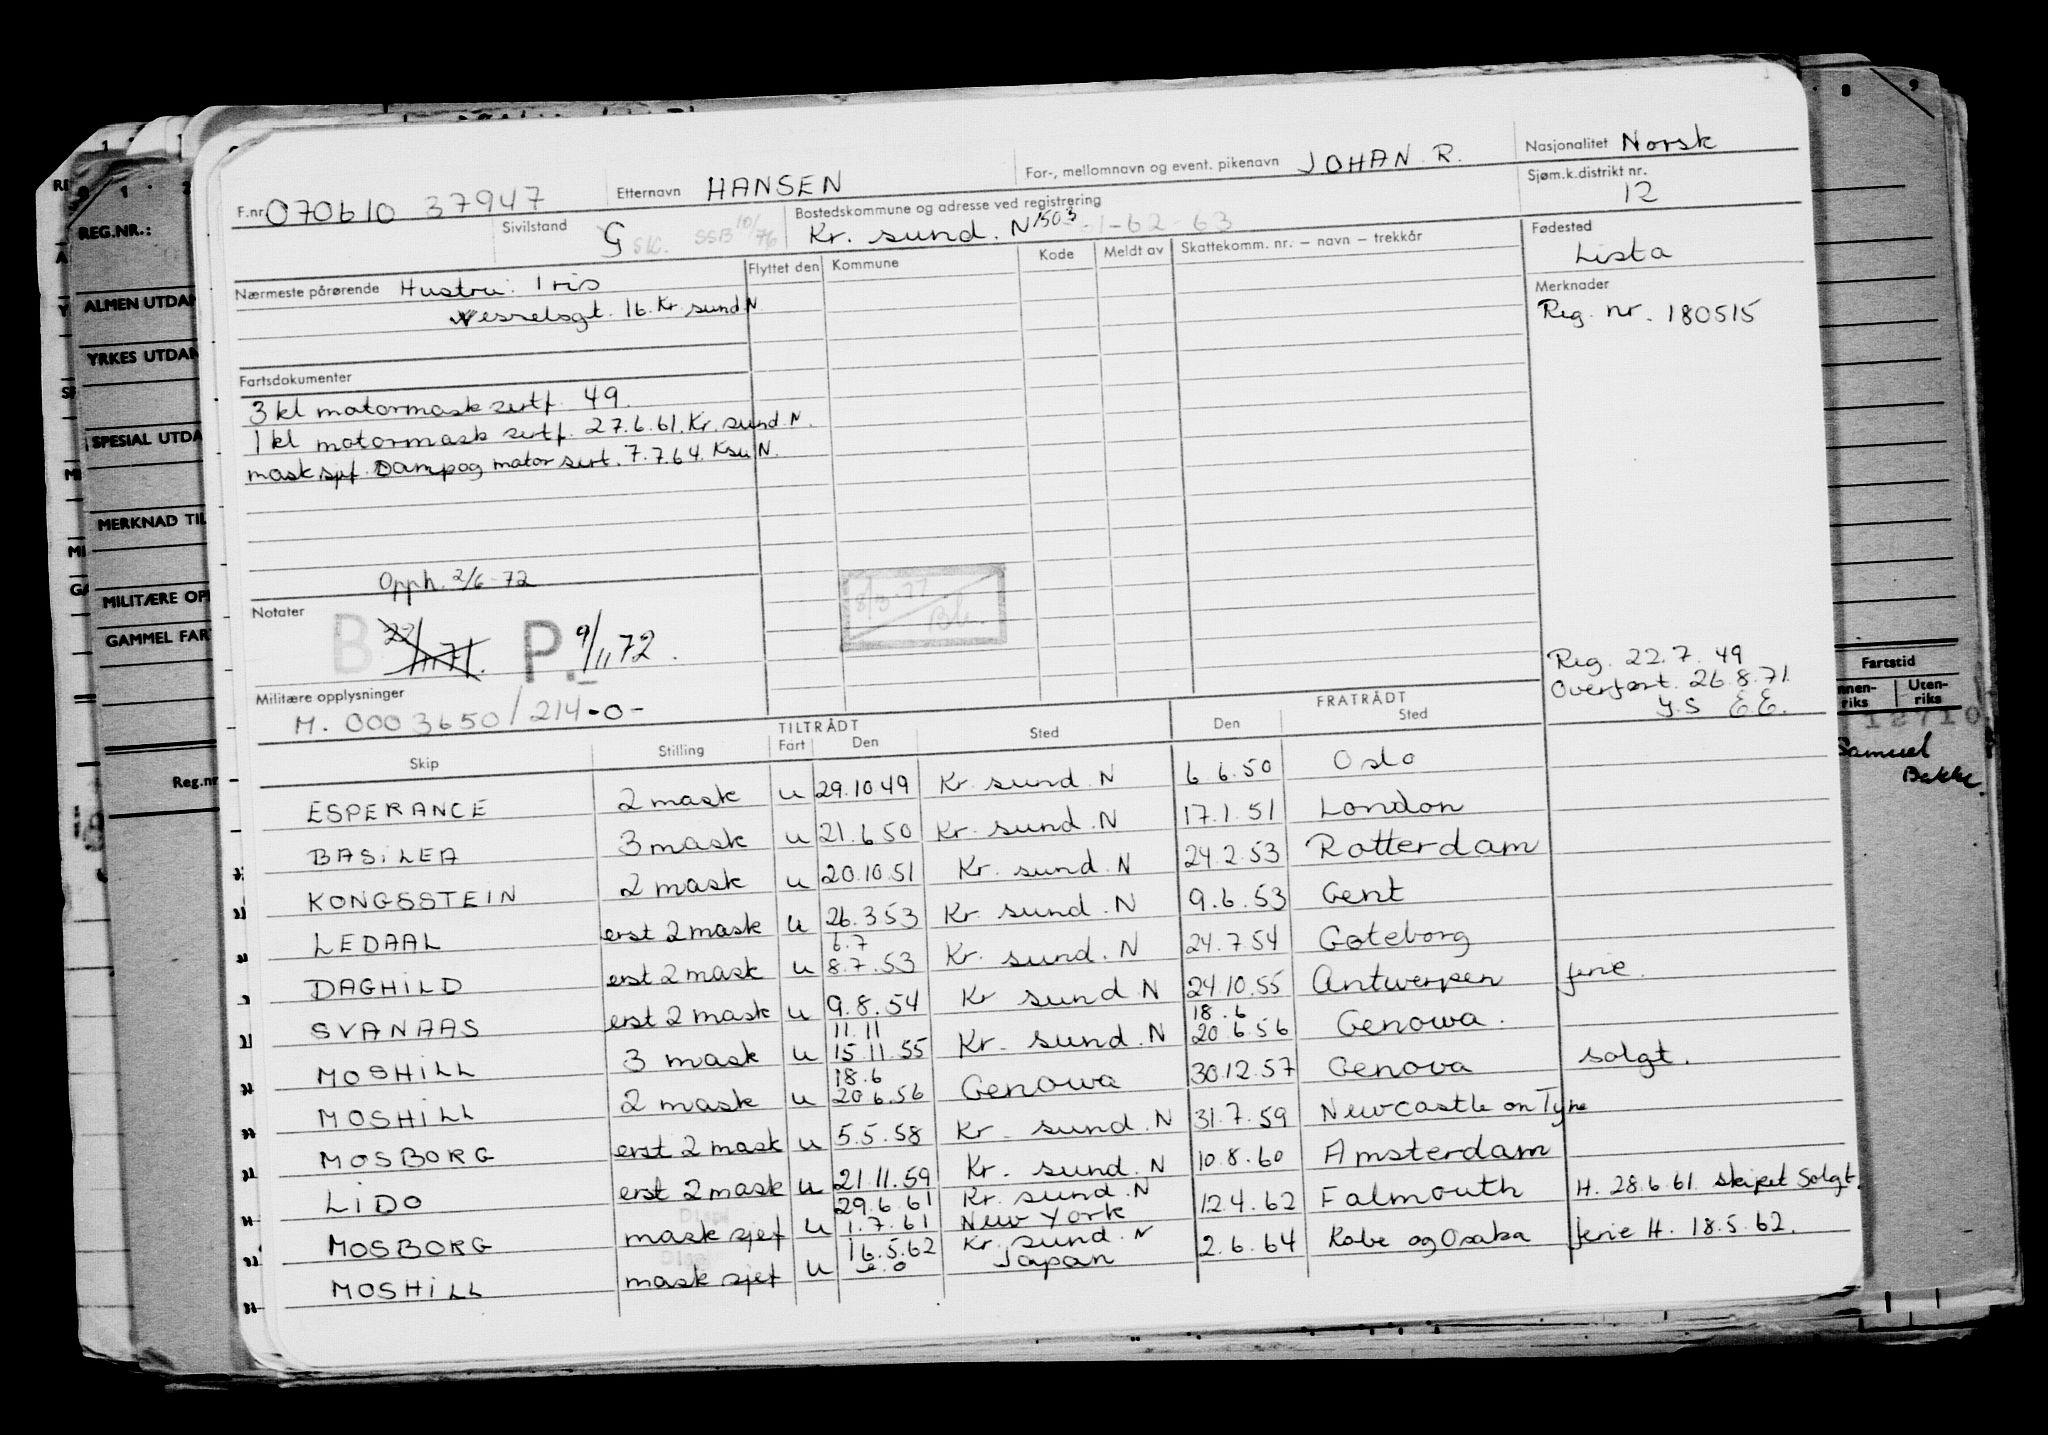 F.nr. 070610 37947 Etternavn HANSEN For-, mellomnavn og event. pikenavn JOHAN R. Nasjonalitet Norsk
Sivilstand G SK. SSB 10/76 Bostedskommune og adresse ved registrering Kr. sund. N 1503 -1-62-63 Sjøm.k.distrikt nr. 12
Nærmeste pårørende Hustru: Iris Flyttet den Kommune Kode Meldt av Skattekomm. nr. – navn – trekkår Fødested Lista
Wesselsgt. 16. Kr sund N Merknader
Reg. nr. 180515
Fartsdokumenter
3 kl motormask sertf. 49.
1 kl motormask sertf. 27.6.61. Kr. sund. N.
mask sjef. Damp og motor sert. 7.7.64. Ksu N.
Opph. 2/6-72
Notater B 22/11 71. P. 9/11 72.
8/3-77
Reg. 22.7.49
Overført. 26.8.71.
Y.S E.E.
Militære opplysninger M. 0003650/214-0-
TILTRÅDT FRATRÅDT
Skip Stilling Fart Den Sted Den Sted
ESPERANCE 2 mask u 29.10 49 Kr. sund. N 6.6.50 Oslo
BASILEA 3 mask u 21.6 50 Kr. sund. N 17.1.51 London
KONGSSTEIN 2 mask u 20.10.51 Kr. sund. N 24.2.53 Rotterdam
LEDAAL erst 2 mask u 26.3 53 Kr sund. N 9.6.53 Gent
DAGHILD erst 2 mask u 6.7 8.7.53 Kr. sund. N 24.7.54 Gøteborg
SVANAAS erst 2 mask u 9.8.54 Kr sund N 24.10.55 Antwerpen ferie.
MOSHILL 3 mask u 11.11 15.11.55 Kr. sund. N 18.6 20.6.56 Genowa.
MOSHILL 2 mask u 18.6 20.6.56 Genowa 30.12.57 Genova solgt.
MOSBORG erst 2 mask u 5.5.58 Kr. sund. N 31.7.59 Newcastle on Tyne
LIDO erst 2 mask u 21.11.59 Kr. sund. N 10.8.60 Amsterdam
MOSBORG mask sjef u 29.6.61 1.7.61 Kr. sund. N New York 12.4.62 Falmouth H. 28.6.61. skipet solgt.
MOSHILL mask sjef u 16.5.62 Kr. sund. N Japan 2.6.64 Kobe og Osaka ferie H. 18.5.62.
REG.NR.:
ALMEN UTDAN
YRKES UTDAN
SPESIAL UTDA
MERKNAD TIL
MILITÆRE OP
GAMMEL FAR
Reg.nr
8 9
Fartstid
nnen-riks Uten-riks
Samuel
Bakke.